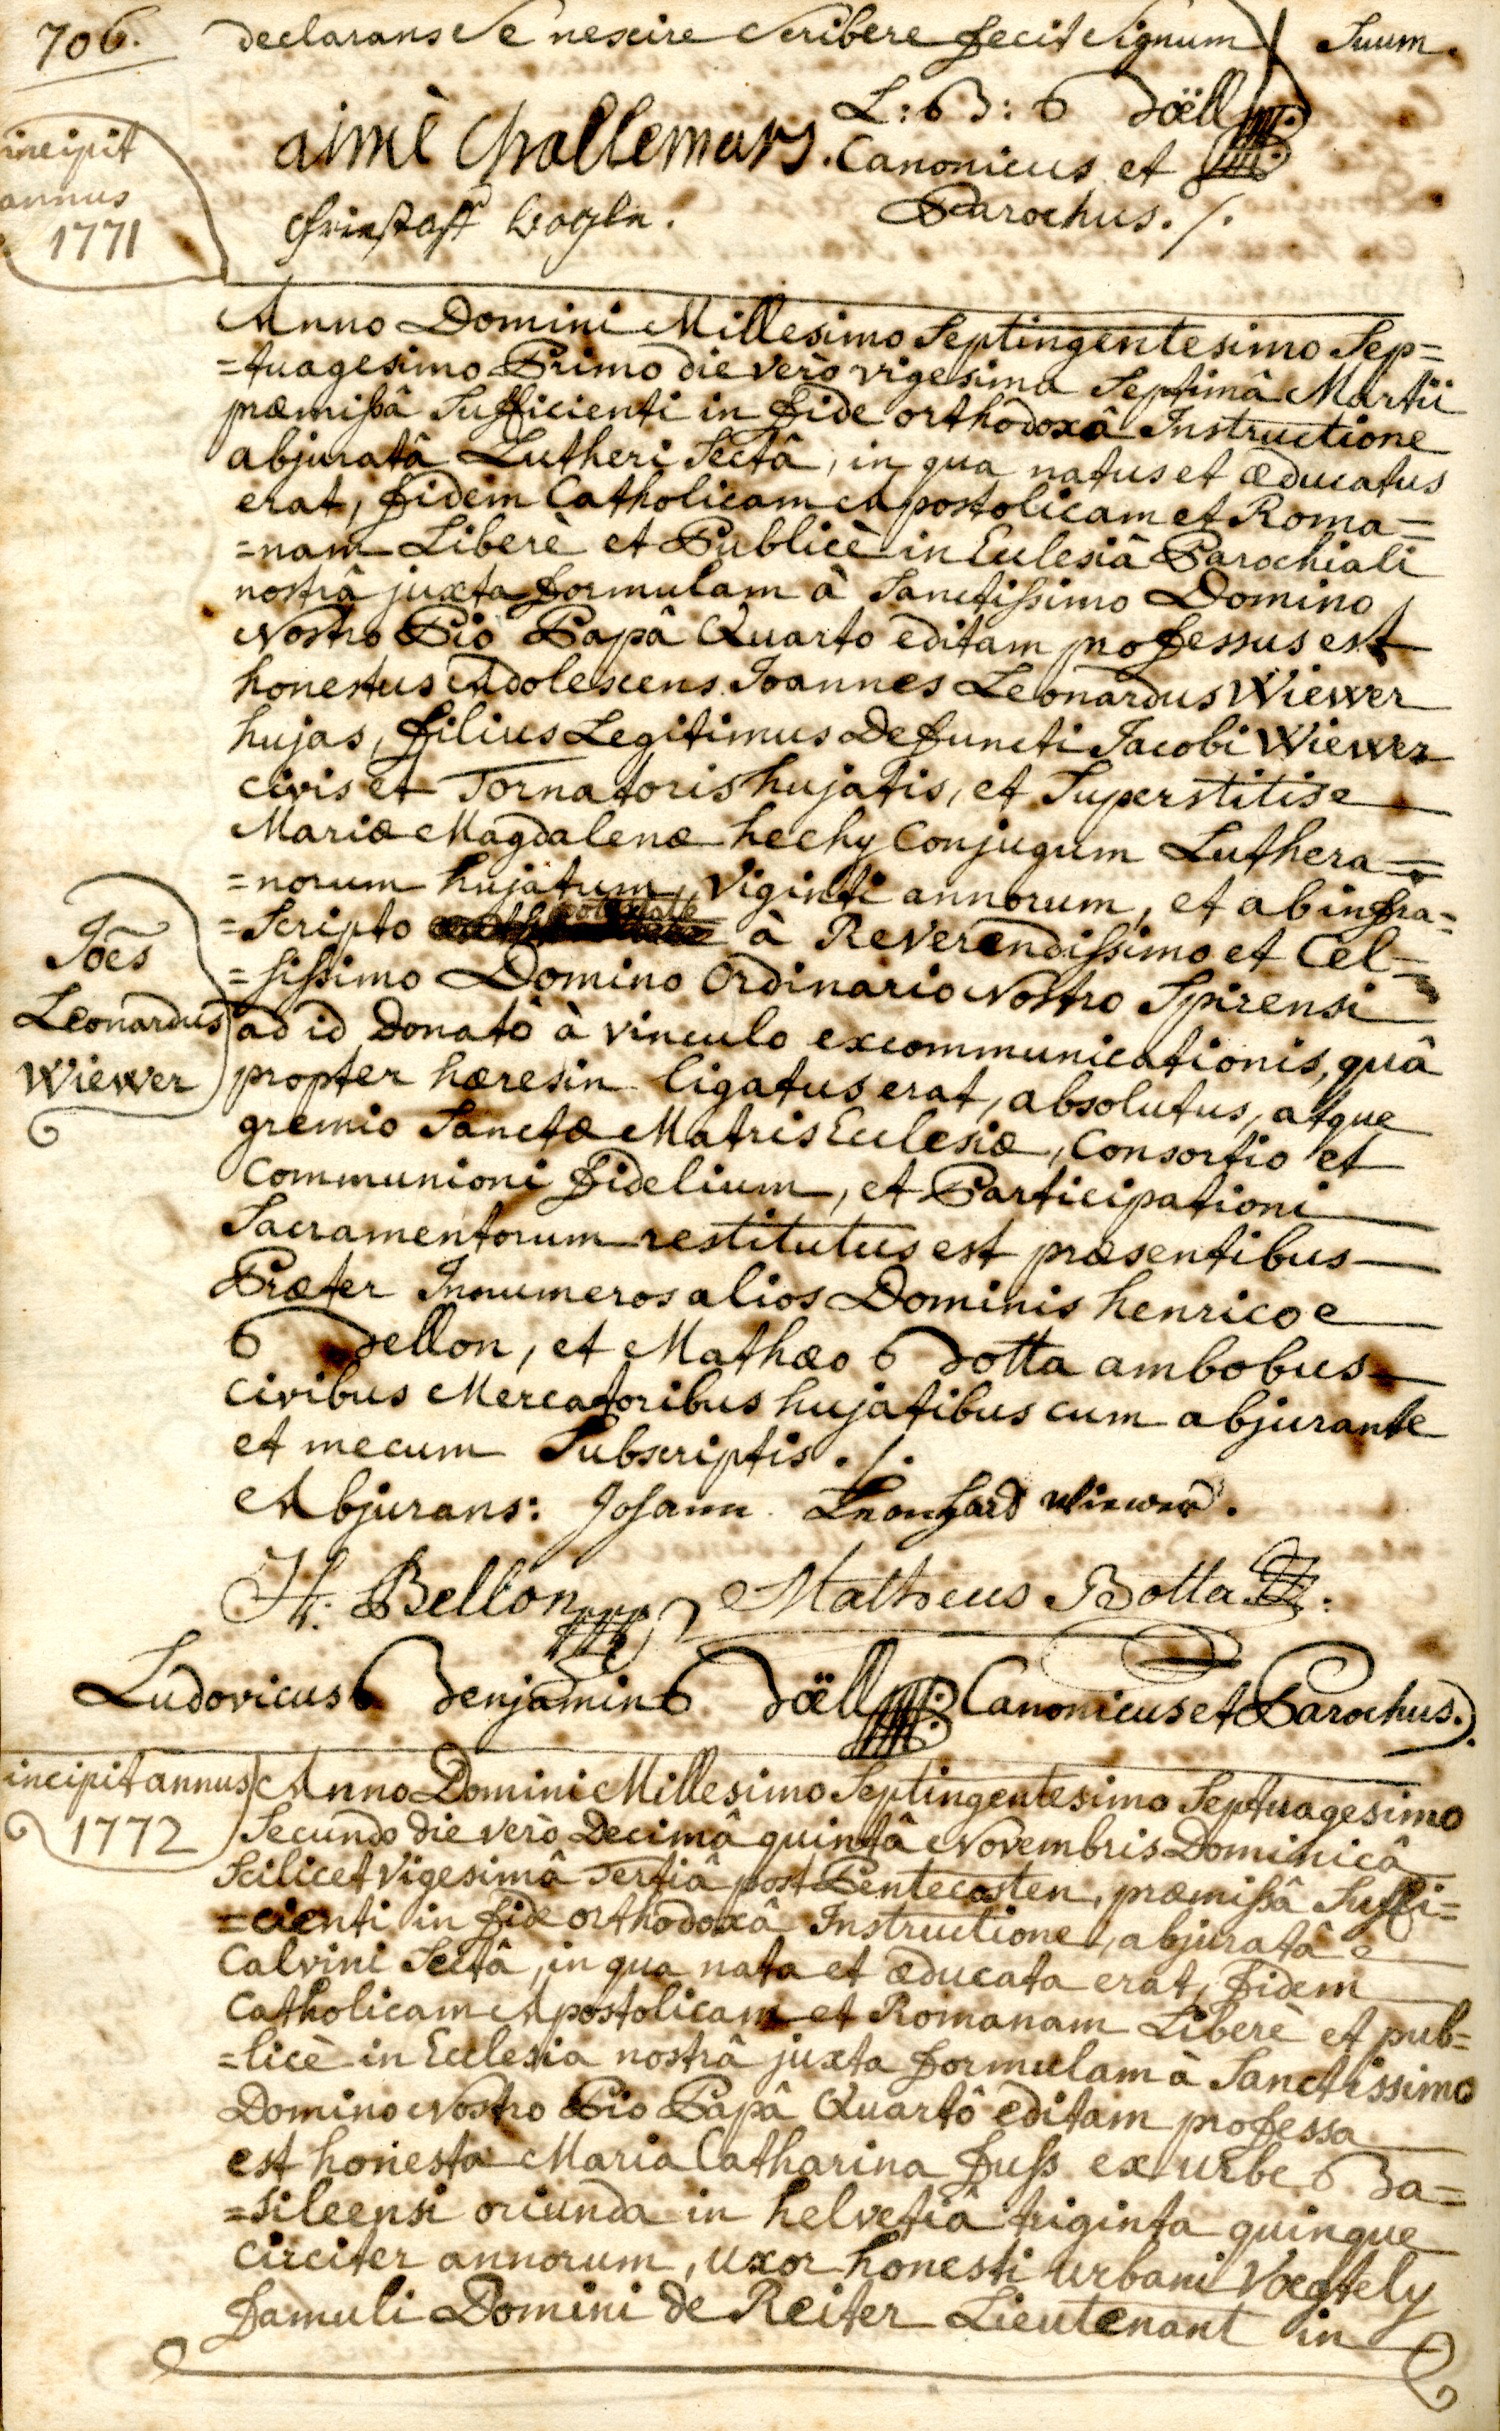 706.
declarans Se nescire Scribere fecit Signum Suum.
aimè Challemars. L: B: Böell
Canonicus et
Christoff Vogler. Parochus. ./.
incipit
annus
1771
Anno Domini Millesimo Septingentesimo Sep=
=tuagesimo Primo die verò vigesima Septimâ Martii
præmissâ Sufficienti in fide orthodoxâ Instructione
abjuratâ Lutheri Sectâ, in qua natus et æducatus
erat, fidem Catholicam Apostolicam et Roma=
=nam Liberè et Publicè in Ecclesiâ Parochiali
nostrâ juxta formulam à Sanctissimo Domino
Nostro Pio Papâ Quarto editam professus est
honestus Adolescens Joannes Leonardus Wiewer
hujas, filius Legitimus Defuncti Jacobi Wiewer
civis et Tornatoris hujatis, et Superstitis
Mariæ Magdalenæ hechy Conjugum Luthera=
=norum hujatum, Viginti annorum, et ab infra=
=Scripto potestate à Reverendissimo et Cel=
=sissimo Domino Ordinario Nostro Spirensi
ad id Donatô à vinculo excommunicationis, quâ
propter hæresin ligatus erat, absolutus, atque
gremio Sanctæ Matris Ecclesiæ, Consortio et
Communioni fidelium, et Participationi
Sacramentorum restitutus est præsentibus
Præter Innumeros alios Dominis henrico
Bellon, et Mathæo Botta ambobus
civibus Mercatoribus hujatibus cum abjurante
et mecum Subscriptis. ./.
Joês
Leonardus
Wiewer
Abjurans: Johann Leonhard Wiewer.
H. Bellon Matheus Botta
Ludovicus Benjamin Böell Canonicus et Parochus.
incipit annus
1772
Anno Domini Millesimo Septingentesimo Septuagesimo
Secundo die verò Decimâ quintâ Novembris Dominicâ
Scilicet vigesimâ Tertiâ post Pentecosten, præmissâ Suffi=
=cienti in fide orthodoxâ Instructione, abjuratâ
Calvini Sectâ, in qua nata et æducata erat, fidem
Catholicam Apostolicam et Romanam Liberè et pub=
=licè in Ecclesia nostrâ juxta formulam à Sanctissimo
Domino Nostro Pio Papâ Quartô editam professa
est honesta Maria Catharina fuss ex urbe Ba=
=sileensi oriunda in helvetiâ triginta quinque
circiter annorum, uxor honesti Urbani Voegtely
famuli Domini de Reiter Lieutenant in